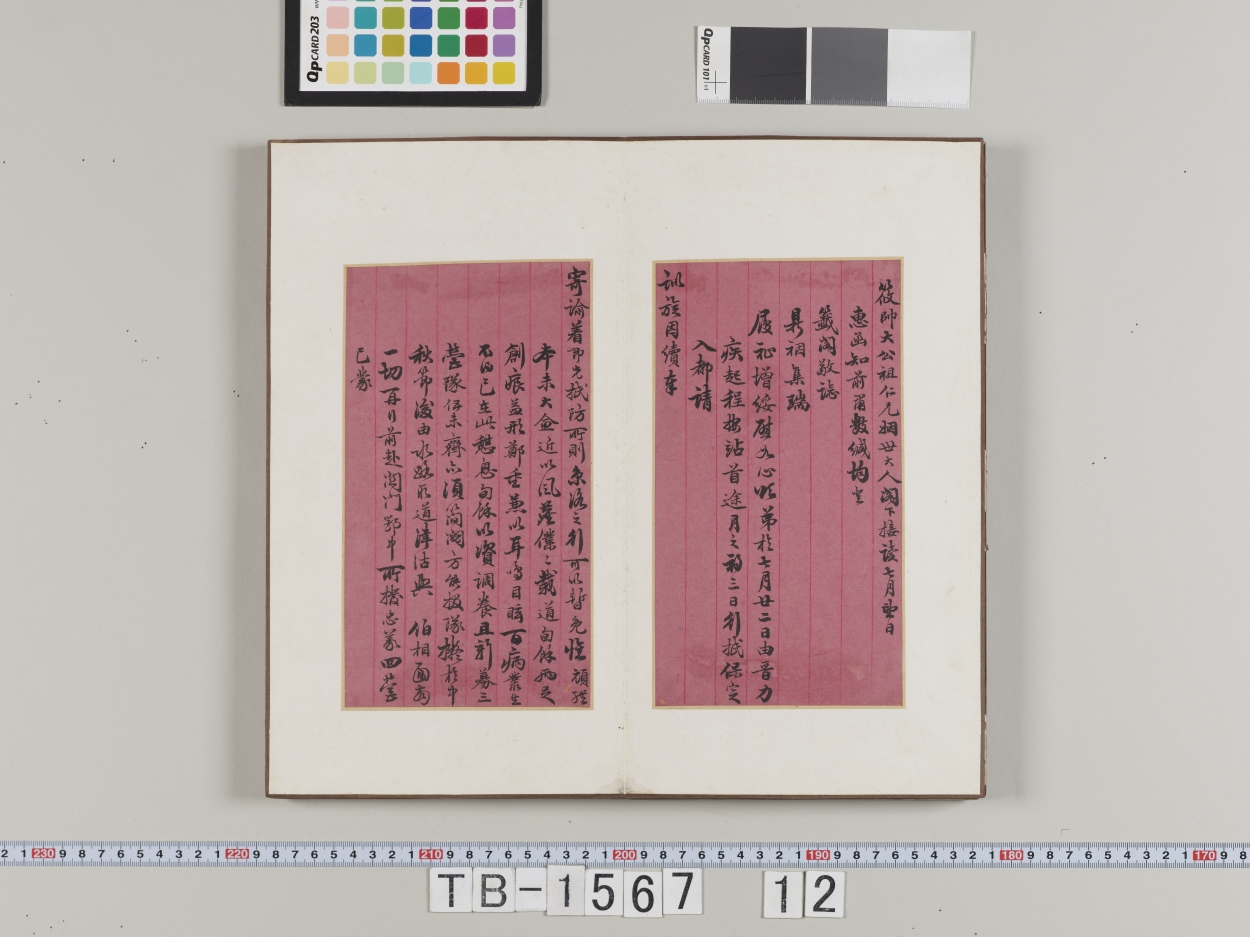 筱帥大公祖仁兄姻世大人閣下接讀七月望日
惠函知前肅數緘均登
籤閣敬諗
鼎祺集瑞
履祉增綏慰如心頌弟於七月廿二日由晉力
疾起程按站首途月之初三日行抵保定
入都請
訓旋因續奉
寄諭着即先拭防所則京洛之行可以暫免惟頑軀
本未大愈近以風塵僕僕載道旬餘兩足
創痕益形鄭重兼以耳鳴目眩百病叢生
不得已在此憩息旬餘以資調養且新募三
營隊伍未齊亦須簡閱方能拔隊擬於中
秋節後由水路取道津沽與 伯相面商
一切再行前赴關門鄂中所撥忠義四營
已蒙
QPCARD 203
QPCARD 101 v4
2 1 230 9 8 7 6 5 4 3 2 1 220 9 8 7 6 5 4 3 2 1 210 9 8 7 6 5 4 3 2 1 200 9 8 7 6 5 4 3 2 1 190 9 8 7 6 5 4 3 2 1 180 9 8 7 6 5 4 3 2 1 170 9 8
TB-1567 12